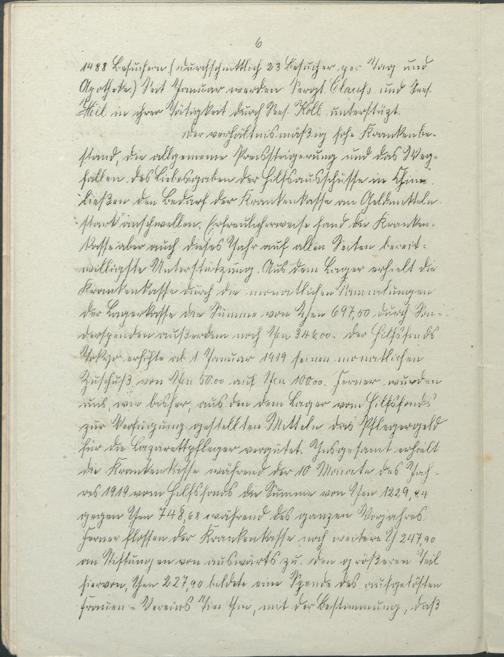 6
1488 Besuchern (durchschnittlich 23 Besucher per Tag und
Apotheke.) Seit Januar werden Sergt. und Sees.
Mil in ihrer Tätigkeit durch Sees. Köll unterstützt.
Der verhältnismäßig hohe Krankenbe-
stand, die allgemeine Preissteigerung und das Weg-
fallen des Liebesgaben der Hilfsausschüsse in China
ließen den Bedarf der Krankenkasse an Geldmitteln
stark anschwellen. Erfreulicherweise fand die Kranken-
kasse aber auch dieses Jahr auf allen Seiten bereit-
willigste Unterstützung. Aus dem Lager erhielt die
Krankenkasse durch die monatlichen Sammlungen
der Lagerkasse die Summe von Yen 697,50 durch Son-
derspenden außerdem noch Yen 346.00. Der Hilfsfonds
Tokyo erhöhte ab 1 Januar 1919 seinen monatlichen
Zuschuß von Yen 50.00 auf Yen 100.00. Ferner wurden
uns, wie bisher, aus den dem Lager vom Hilfsfonds
zur Verfügung gestellten Mitteln das Pflegergeld
für die Lazarettpfleger vergütet. Insgesamt erhielt
die Krankenkasse während der 10 Monate des Jah-
res 1919 vom Hilfsfonds die Summe von Yen 1229,44
gegen Yen 748,68 während des ganzen Vorjahres.
Ferner flossen der Krankenkasse noch weitere Y 247,90
an Stiftungen von auswärts zu. Den größeren Teil
hiervon, Yen 227,90 bildete eine Spende des aufgelösten
Frauen-Vereins Tsin Tau, mit der Bestimmung, daß